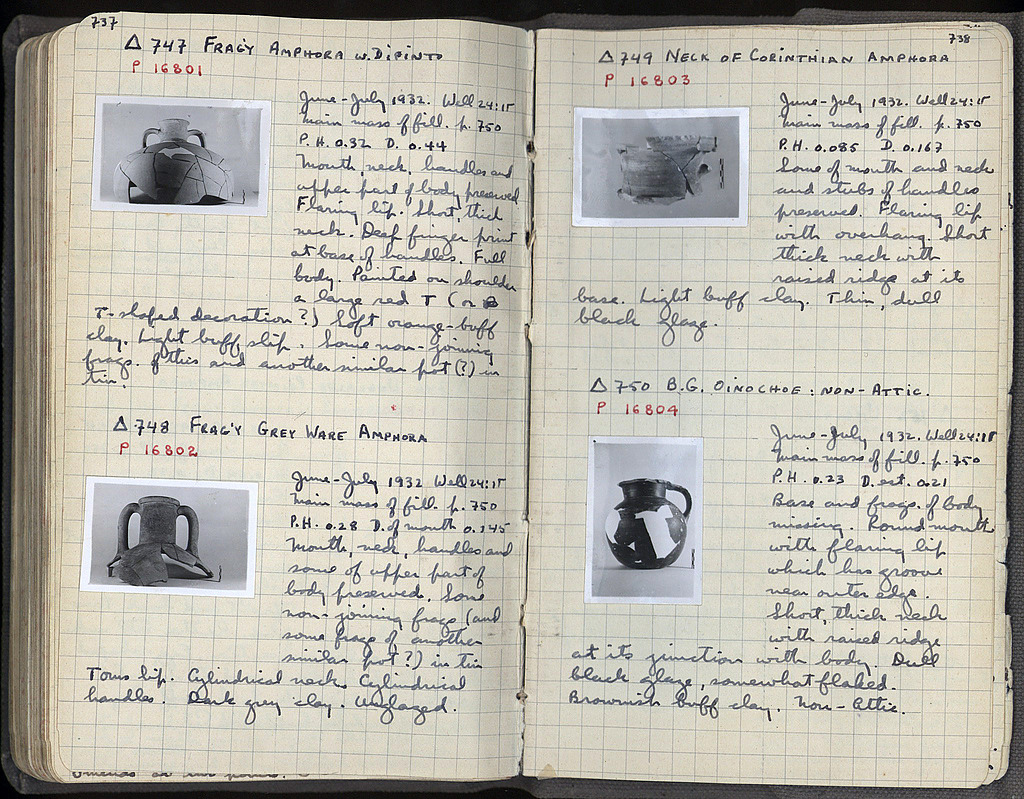 737
Δ 747 FRAG'Y AMPHORA W. DIPINTO
P 16801
June-July 1932. Well 24:15
main mass of fill. p. 750
P.H. 0.32 D. 0.44
Mouth, neck, handles and
upper part of body preserved
Flaring lip. Short, thick
neck. Deep finger print
at base of handles. Full
body. Painted on shoulder
a large red T (or
T-shaped decoration?) Soft orange-buff
clay. Light buff slip. Some non-joining
frags. of this and another similar pot (?) in
tin.
Δ 748 FRAG'Y GREY WARE AMPHORA
P 16802
June-July 1932 Well 24:15
main mass of fill. p. 750
P.H. 0.28 D. of mouth 0.145
Mouth, neck, handles and
some of upper part of
body preserved. Some
non-joining frags (and
some frags of another
similar pot?) in tin
Torus lip. Cylindrical neck. Cylindrical
handles. Dark grey clay. Unglazed.
738
Δ 749 NECK OF CORINTHIAN AMPHORA
P 16803
June-July 1932. Well 24:15
main mass of fill. p. 750
P.H. 0.085 D. 0.167
Some of mouth and neck
and stubs of handles
preserved. Flaring lip
with overhang. Short
thick neck with
raised ridge at its
base. Light buff clay. Thin, dull
black glaze.
Δ 750 B.G. OINOCHOE: NON-ATTIC.
P 16804
June-July 1932. Well 24:15
main mass of fill. p. 750
P.H. 0.23 D. est. 0.21
Base and frags. of body
missing. Round mouth
with flaring lip
which has groove
near outer edge.
Short, thick neck
with raised ridge
at its junction with body. Dull
black glaze, somewhat flaked.
Brownish buff clay. Non-Attic.